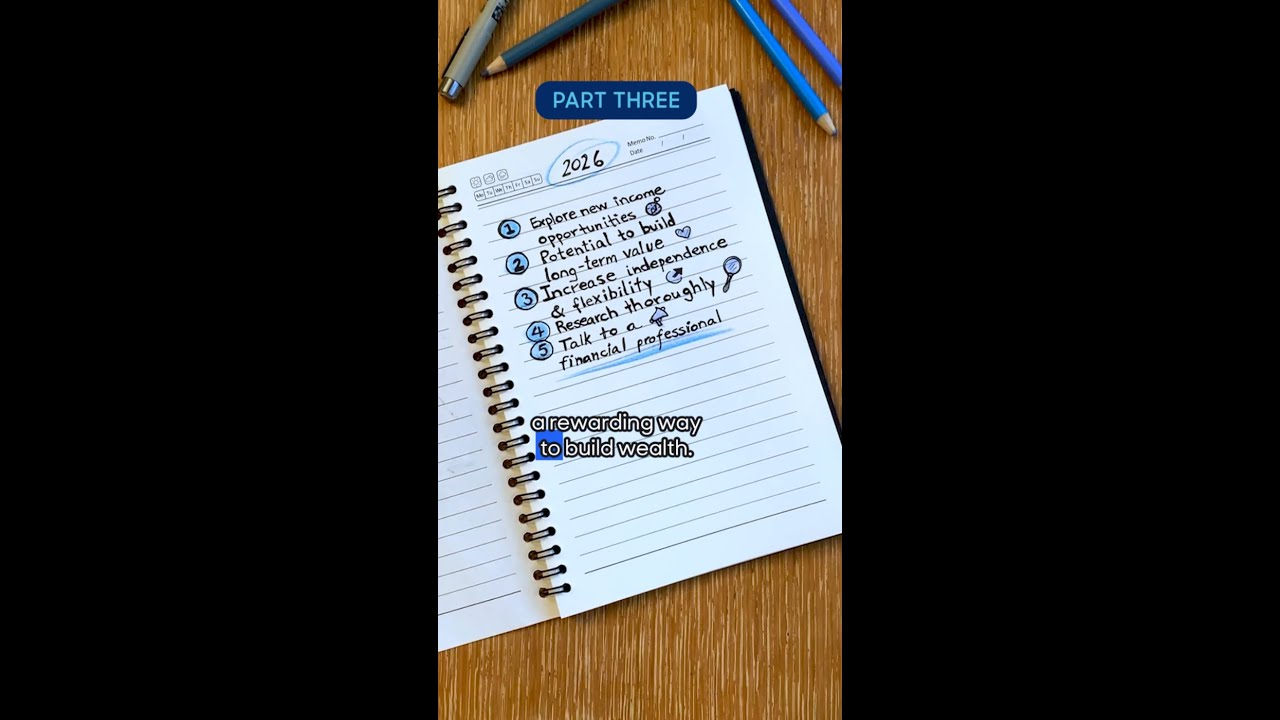 PART THREE
2026
Memo No.
Date / /
Mo Tu We Th Fr Sa Su
1 Explore new income
opportunities
2 Potential to build
long-term value
3 Increase independence
& flexibility
4 Research thoroughly
5 Talk to a
financial professional
a rewarding way
to build wealth.